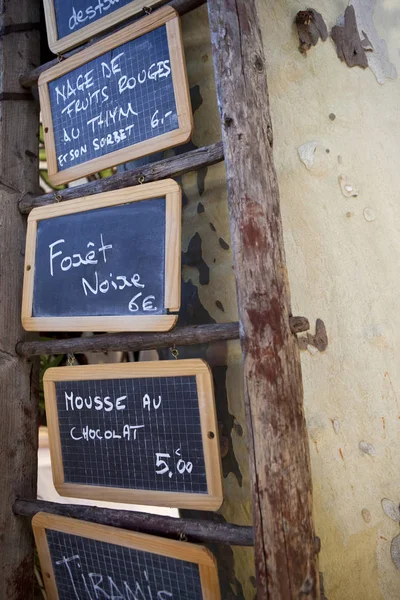 NAGE DE
FRUITS ROUGES
AU THYM
6.-
ET SON SORBET
Forêt
Noire
6€
MOUSSE AU
CHOCOLAT
5,00
TIRAMIS